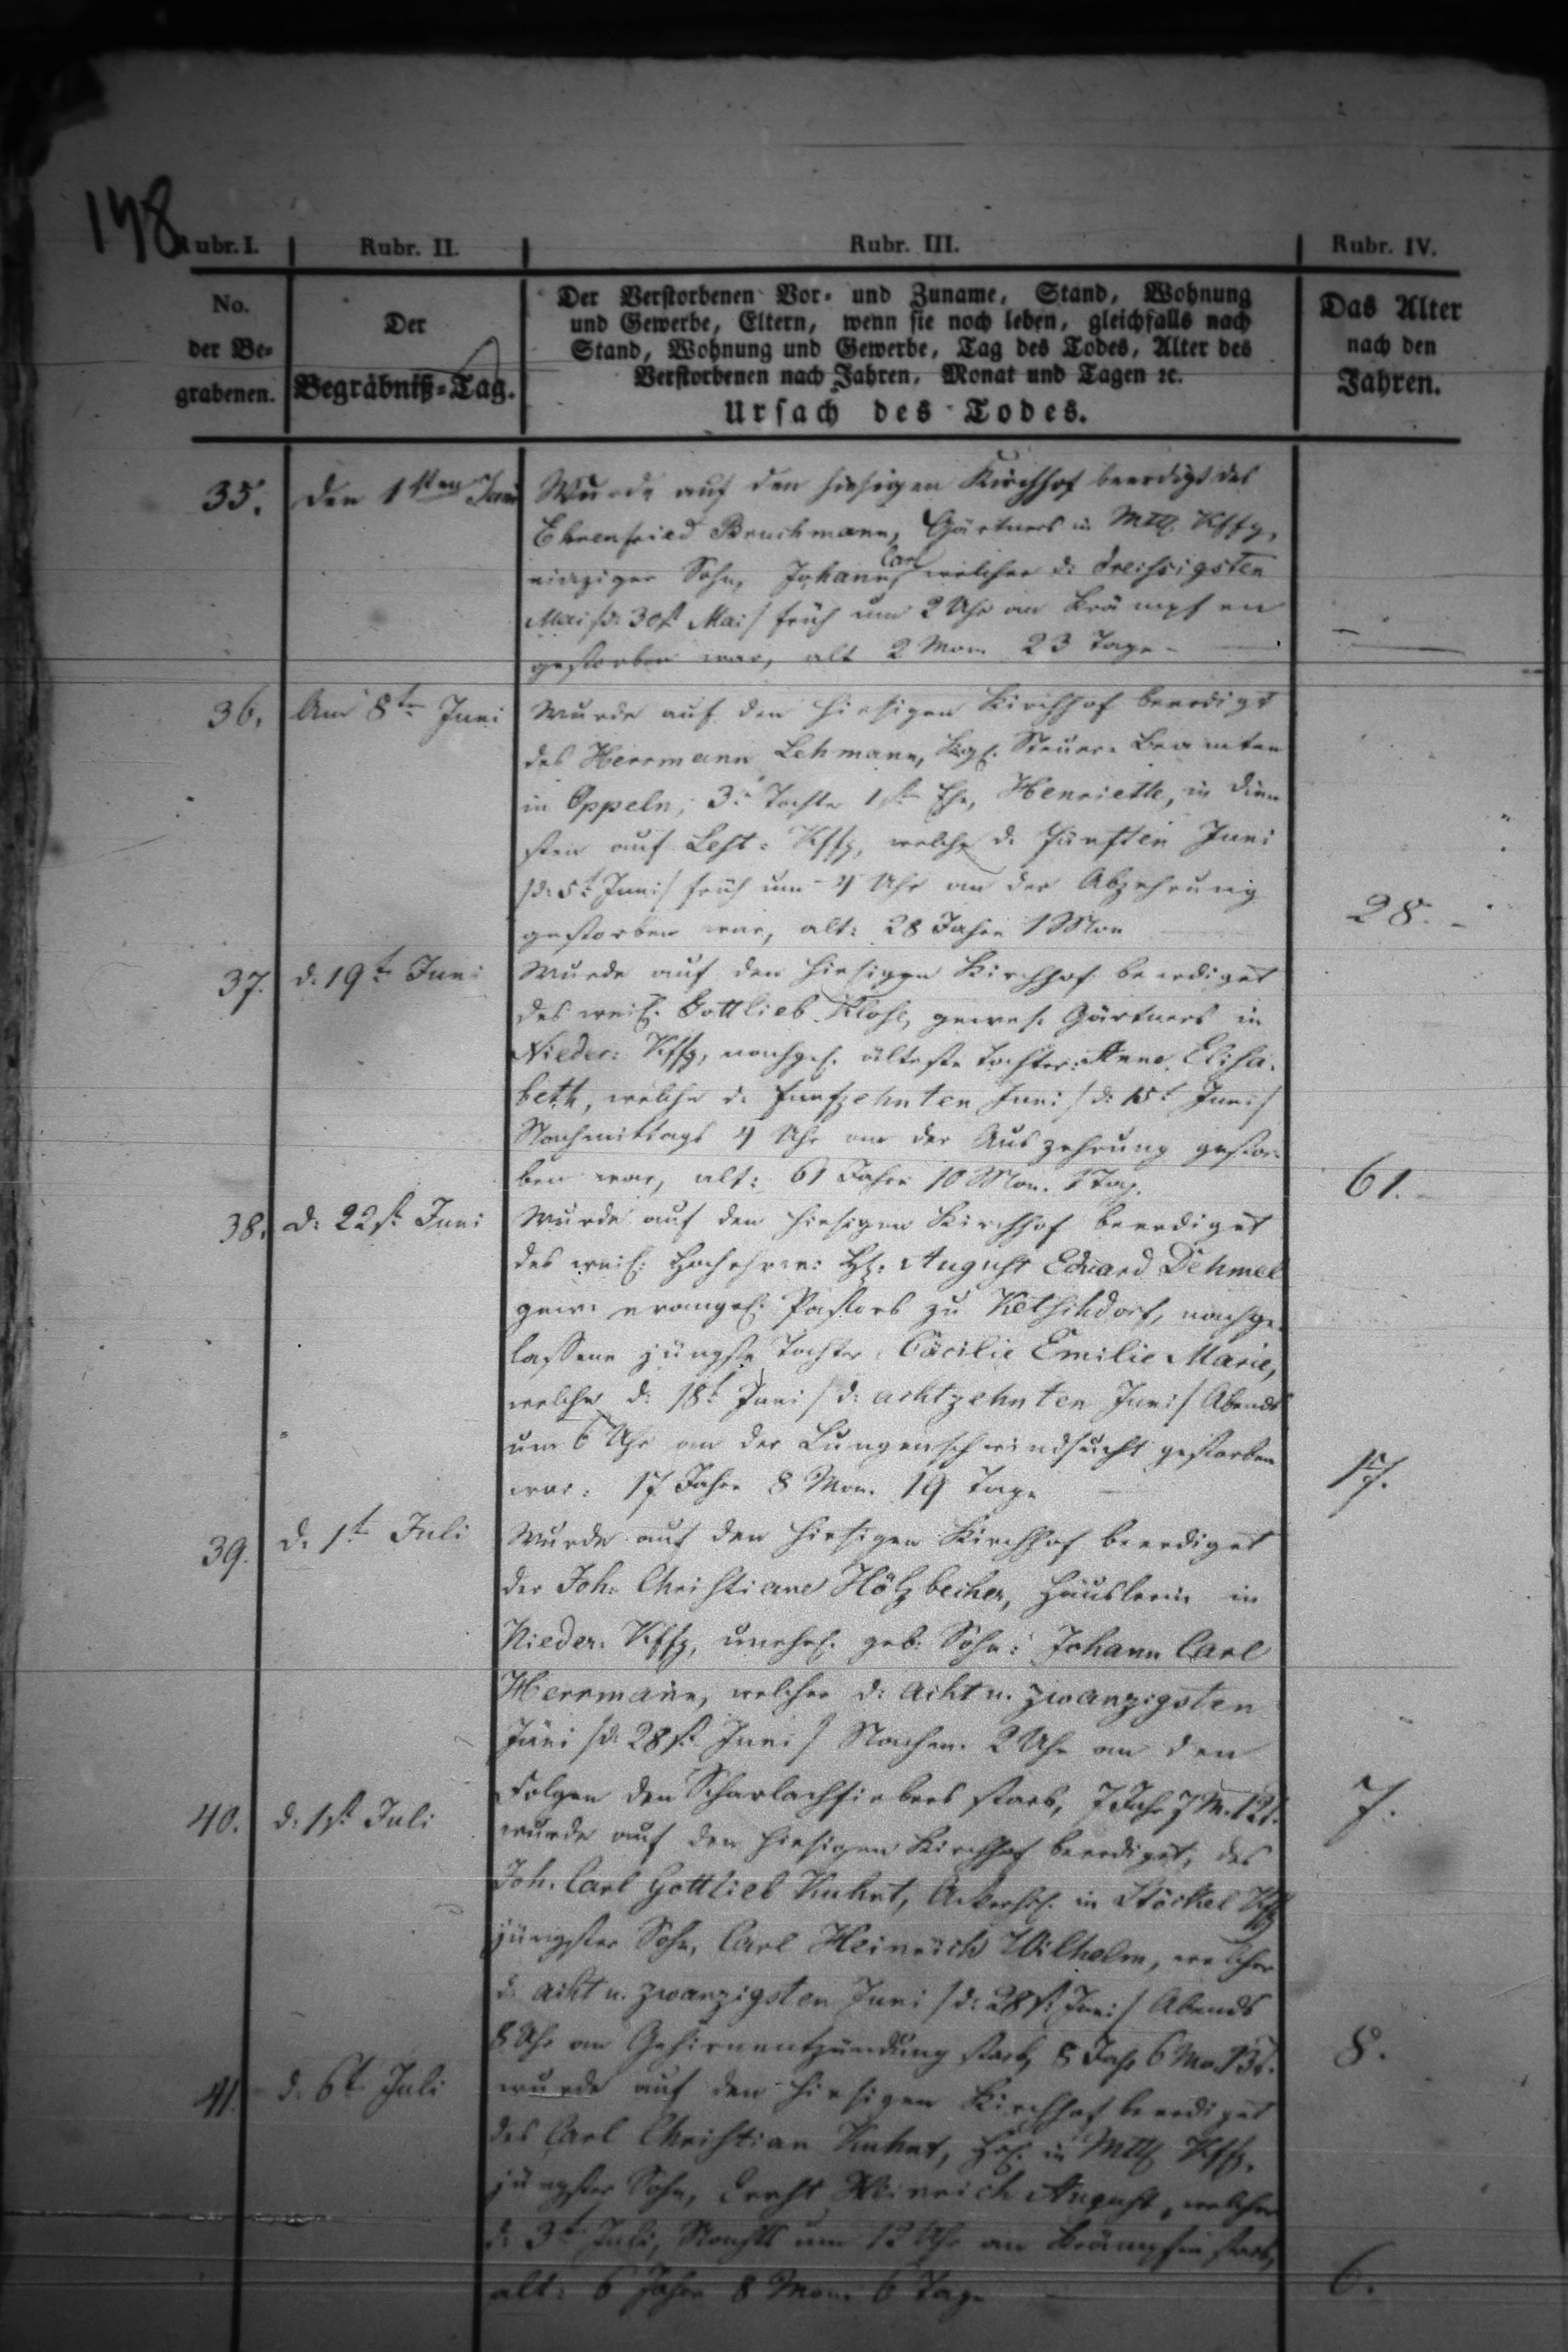 148
Rubr. I. Rubr. II. Rubr. III. Rubr. IV.
No.
der Be-
grabenen.
Der
Begräbniß-Tag.
Der Verstorbenen Vor- und Zuname, Stand, Wohnung
und Gewerbe, Eltern, wenn sie noch leben, gleichfalls nach
Stand, Wohnung und Gewerbe, Tag des Todes, Alter des
Verstorbenen nach Jahren, Monat und Tagen ꝛc.
Ursach des Todes.
Das Alter
nach den
Jahren.
35. den 1sten Juni Wurde auf den hiesigen Kirchhof beerdigt des
Ehrenfried Bruchmann, Gärtners in Kffg,
einziger Sohn, Johann Carl welcher d. dreissigsten
Mai /d. 30st. Mai/ früh um 2 Uhr an Krämpfen
gestorben war, alt 2 Mon. 23 Tage -
36. Am 8ten Juni Wurde auf den hiesigen Kirchhof beerdigt
des Herrmann Lehmann, Kgl. Steuer-Beamten
in Oppeln, 3. Tochter 1ster Ehe, Henriette, in Dien
sten auf Kffg, welche d. fünften Juni
/d. 5t. Juni/ früh um 4 Uhr an der Abzehrung
gestorben war, alt: 28 Jahre 1 Mon 28. -
37. d. 19t. Juni Wurde auf den hiesigen Kirchhof beerdiget
des weil. Gottlieb Klose, gewes. Gärtners in
Nieder: Kffg, nachgel. älteste Tochter: Anne Elisa-
beth, welche d. funfzehnten Juni /d. 15t. Juni/
Nachmittags 4 Uhr an der Auszehrung gestor-
ben war, alt: 61 Jahre 10 Mon. 1 Tag. 61.
38. d. 22st. Juni Wurde auf den hiesigen Kirchhof beerdiget
des weil. August Eduard Dehmel
gew. evangel. Pastors zu Ketschdorf, nachge-
lassene jüngste Tochter, Cäcilie Emilie Marie,
welche d. 18t. Juni /d. achtzehnten Juni/ Abends
um 6 Uhr an der Lungenschwindsucht gestorben
war: 17 Jahre 8 Mon. 19 Tage 17.
39. d. 1t. Juli Wurde auf den hiesigen Kirchhof beerdiget
der Joh. Christiane Hölzbecher, Häuslerin in
Nieder. Kffg, unehel. geb. Sohn: Johann Carl
Herrmann, welcher d. acht u. zwanzigsten
Juni /d. 28st. Juni/ Nachm. 2 Uhr an den
Folgen des Scharlachfiebers starb, 7 Jahr 7 M. 12t. 7.
40. d. 1st. Juli wurde auf den hiesigen Kirchhof beerdiget, des
Joh. Carl Gottlieb Kuhnt, in Stöckel Kffg
jüngster Sohn, Carl Heinrich Wilhelm, welcher
d. acht u. zwanzigsten Juni /d. 28st. Juni/ Abends
8 Uhr an Gehirnentzündung starb, 8 Jahr 6 Mo. 8.
41. d. 6t. Juli wurde auf den hiesigen Kirchhof beerdiget
des Carl Christian Kuhnt, in Kffg.
jüngster Sohn, Ernst Heinrich August, welcher
d. 3t. Juli, Nachts um 12 Uhr an Krämpfen starb,
alt: 6 Jahre 8 Mon. 6 Tage 6.